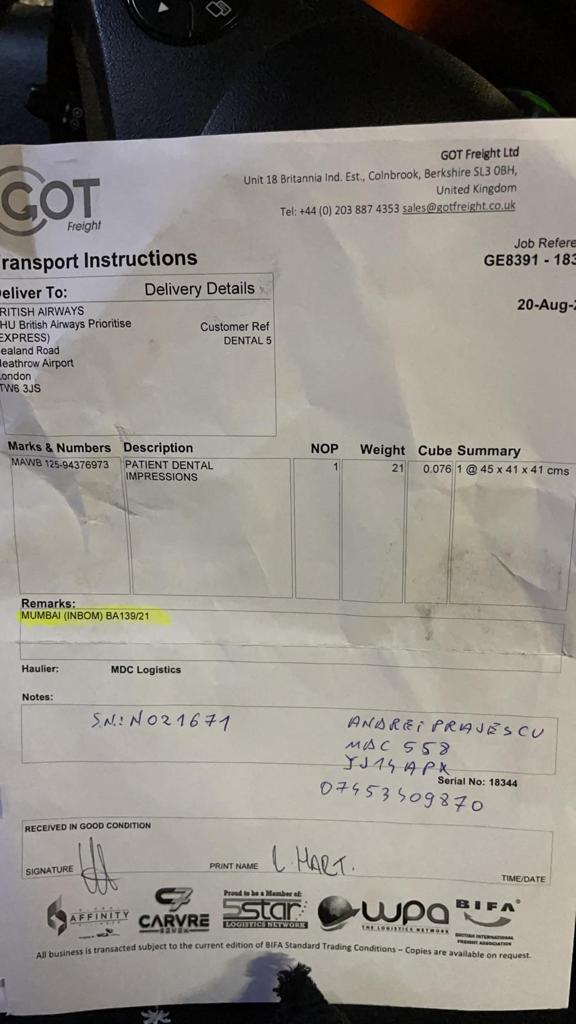 GOT Freight Ltd
Unit 18 Britannia Ind. Est., Colnbrook, Berkshire SL3 0BH,
United Kingdom
Tel: +44 (0) 203 887 4353 sales@gotfreight.co.uk
GOT
Freight
ransport Instructions
Job Refere
GE8391 - 183
eliver To:
Delivery Details
20-Aug-
RITISH AIRWAYS
HU British Airways Prioritise
EXPRESS)
ealand Road
eathrow Airport
ondon
TW6 3JS
Customer Ref
DENTAL 5
Marks & Numbers Description NOP Weight Cube Summary
MAWB 125-94376973 PATIENT DENTAL 1 21 0.076 1 @ 45 x 41 x 41 cms
IMPRESSIONS
Remarks:
MUMBAI (INBOM) BA139/21
Haulier: MDC Logistics
Notes:
S.N: N021671
ANDREI PRAJESCU
MDC 558
YJ14 APX
Serial No: 18344
07453409870
RECEIVED IN GOOD CONDITION
SIGNATURE
PRINT NAME L. HART.
TIME/DATE
AFFINITY
CARVRE
SEVEN
Proud to be a Member of:
5star
LOGISTICS NETWORK
wpa
THE LOGISTICS NETWORK
BIFA
BRITISH INTERNATIONAL
FREIGHT ASSOCIATION
All business is transacted subject to the current edition of BIFA Standard Trading Conditions – Copies are available on request.